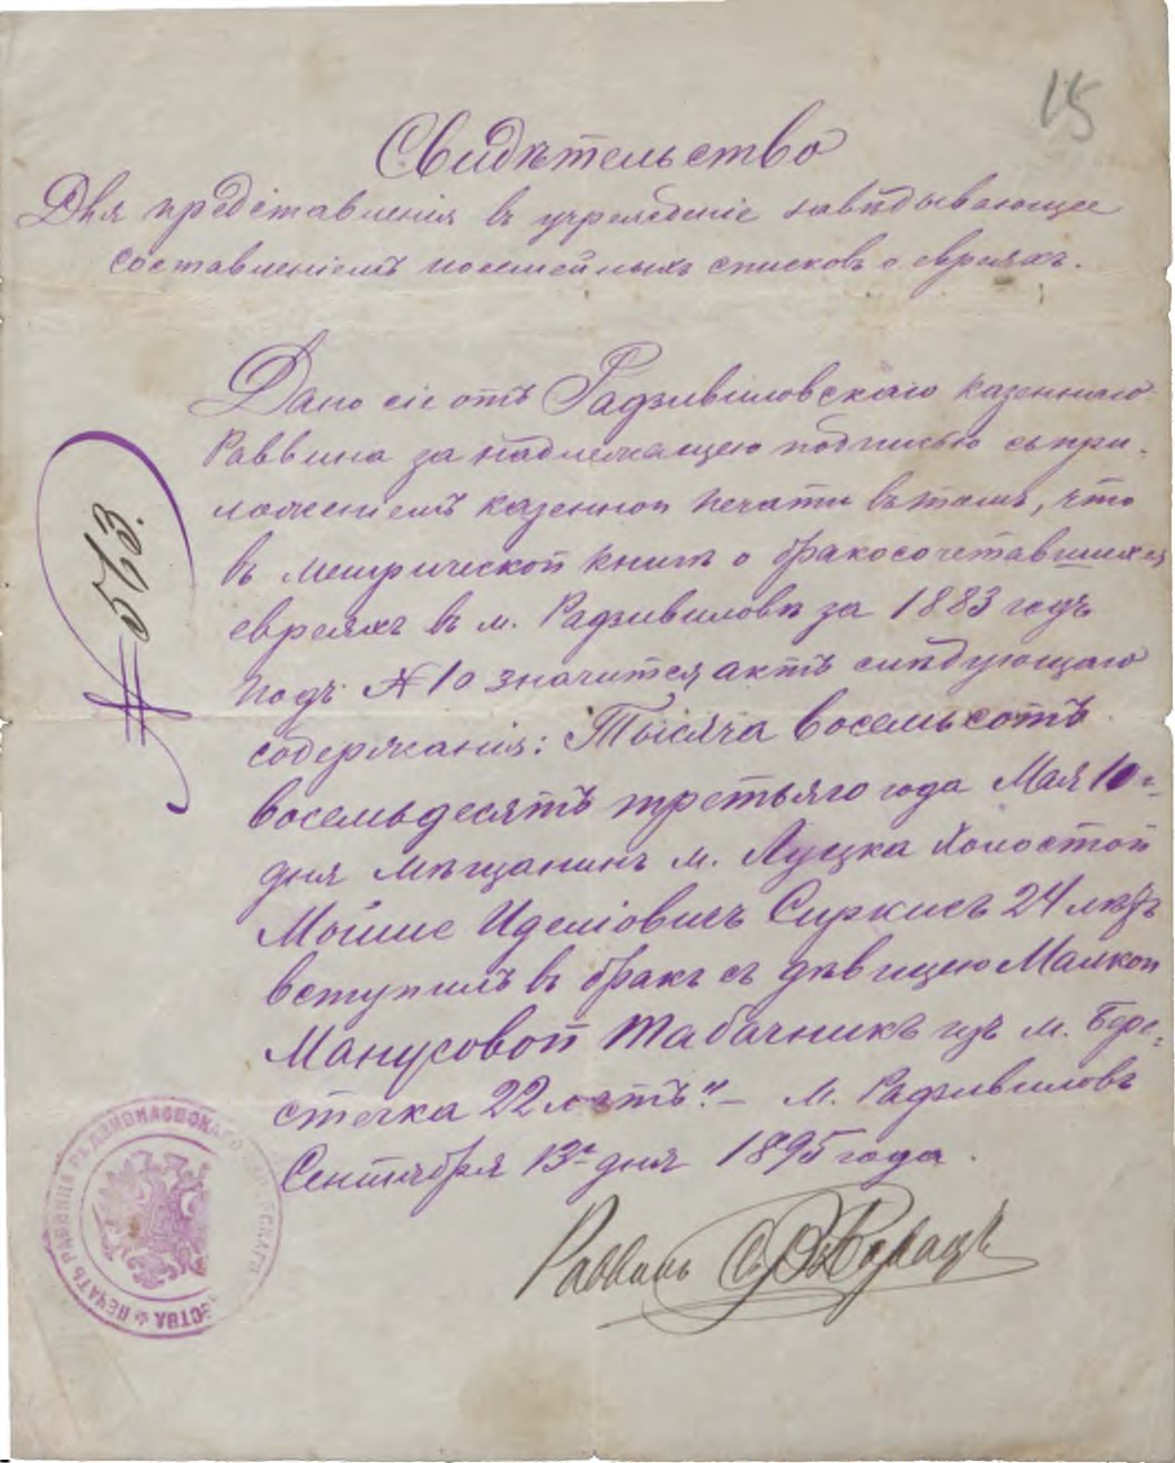 15
Свидѣтельство
Для представленія въ учрежденіе завѣдывающее
составленіемъ посемейныхъ списковъ о евреяхъ.
№ 563.
Дано сіе отъ Радзивиловскаго казеннаго
Раввина за надлежащею подписью съ при-
ложеніемъ казенной печати въ томъ, что
въ метрической книгѣ о бракосочетавшихся
евреяхъ в м. Радзивиловѣ за 1883 годъ
подъ № 10 значится актъ слѣдующаго
содержанія: Тысяча восемьсотъ
восемьдесятъ третьяго года Мая 10-
дня мѣщанинъ м. Луцка холостой
Мойше Иделіовичъ Сиркисъ 24 лѣтъ
вступилъ въ бракъ съ дѣвицею Малкой
Манусовой Табачникъ изъ м. Бере-
стечка 22 лѣтъ". — м. Радзивиловъ
Сентября 13 дня 1895 года.
Раввинъ
ПЕЧАТЬ РАВВИНА